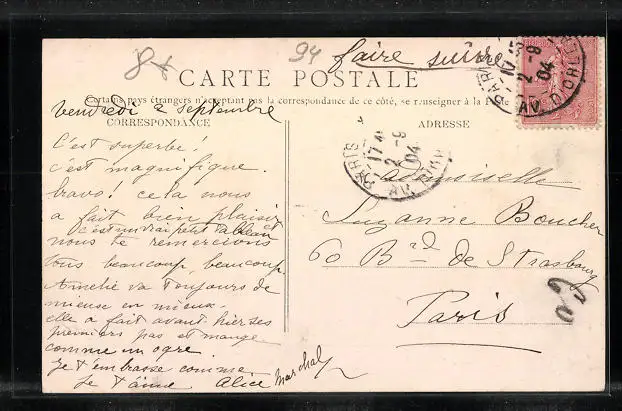 8+
94
faire suivre
CARTE POSTALE
Certains pays étrangers n'acceptant pas la correspondance de ce côté, se renseigner à la Poste
vendredi 2 septembre
CORRESPONDANCE
ADRESSE
C'est superbe!
c'est magnifique.
bravo! cela nous
a fait bien plaisir
c'est un vrai petit tableau et
nous te remercions
tous beaucoup, beaucoup.
Amélie va toujours de
mieuse en mieux.
elle a fait avant hier ses
premiers pas et mange
comme un ogre.
Je t'embrasse comme
Je t'aime Alice Marchal
PARIS
17
2 - 9
04
AV. D'ORLEANS
PARIS
17
2 - 9
04
Mademoiselle
Suzanne Boucher
60 Bd de Strasbourg
Paris